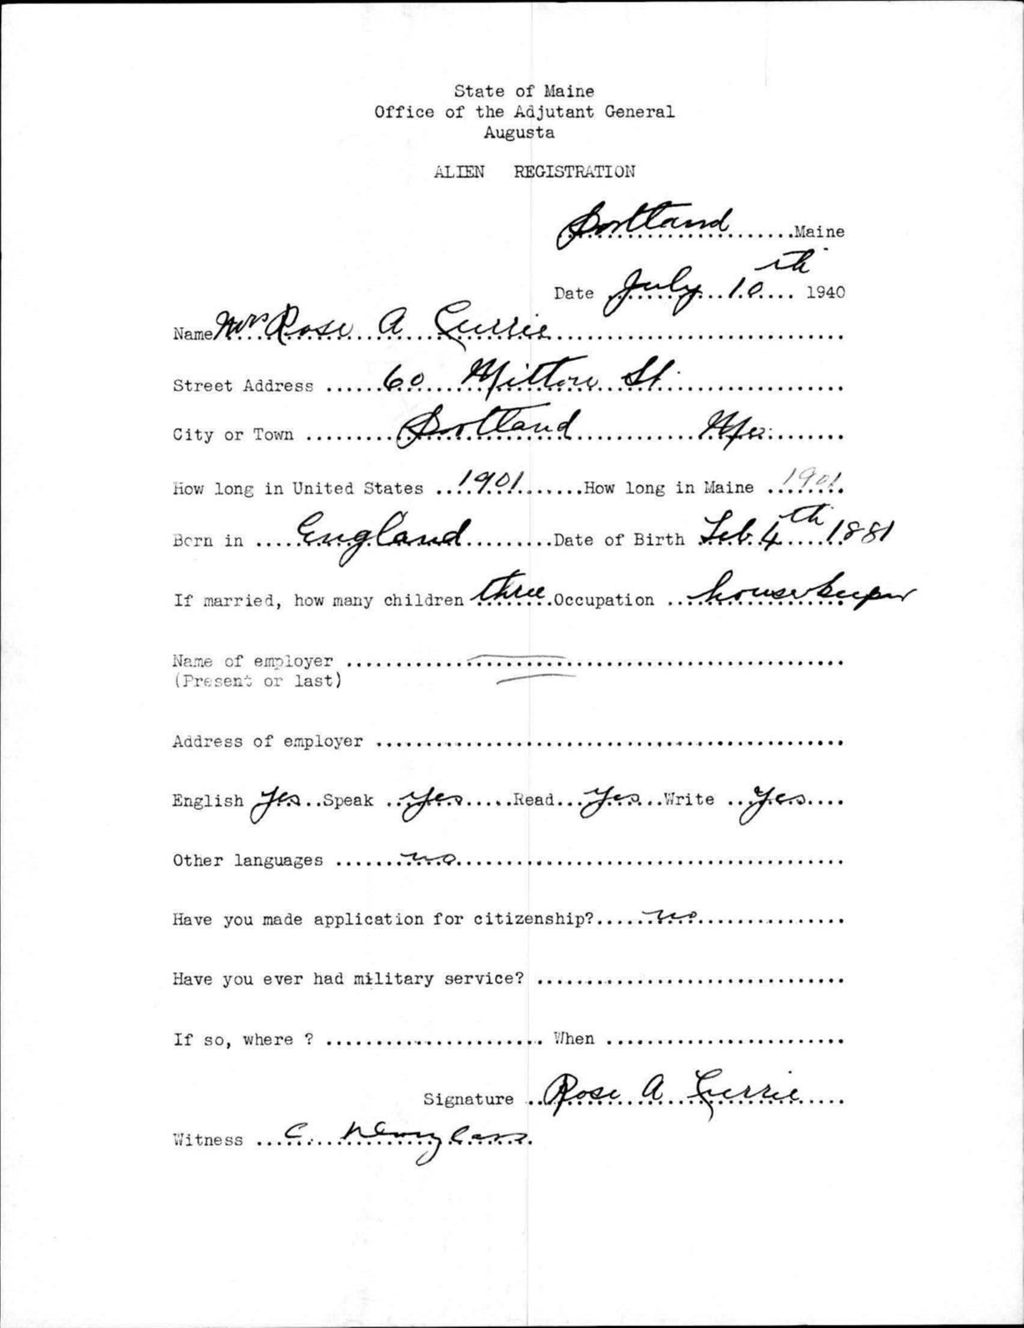 State of Maine
Office of the Adjutant General
Augusta
ALIEN REGISTRATION
Portland, Maine
Date July 10th 1940
Name Mrs Rose A Currie
Street Address 60 Milton St.
City or Town Portland Me.
How long in United States 1901 How long in Maine 1901
Born in England Date of Birth Feb. 4th 1881
If married, how many children three Occupation housekeeper
Name of employer
(Present or last)
Address of employer
English Yes Speak Yes Read Yes Write Yes
Other languages no
Have you made application for citizenship? no
Have you ever had military service?
If so, where ? When
Signature Rose A Currie
Witness C.